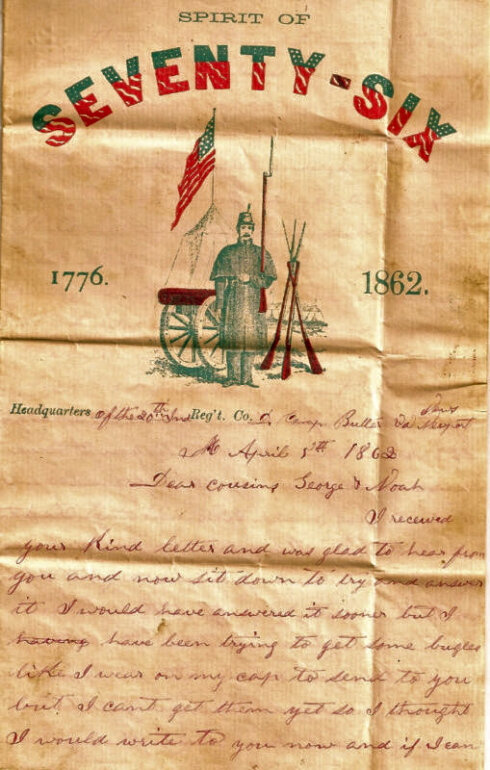 SPIRIT OF
SEVENTY-SIX
1776. 1862.
Headquarters of the 20th Ind Reg't. Co. Camp Butler News
April 5th 1862
Dear cousins George & Noah
I received
your Kind letter and was glad to hear from
you and now sit down to try and answer
it I would have answered it sooner but I
having have been trying to get some bugles
like I wear on my cap to send to you
but I cant get them yet so I thought
I would write to you now and if I can